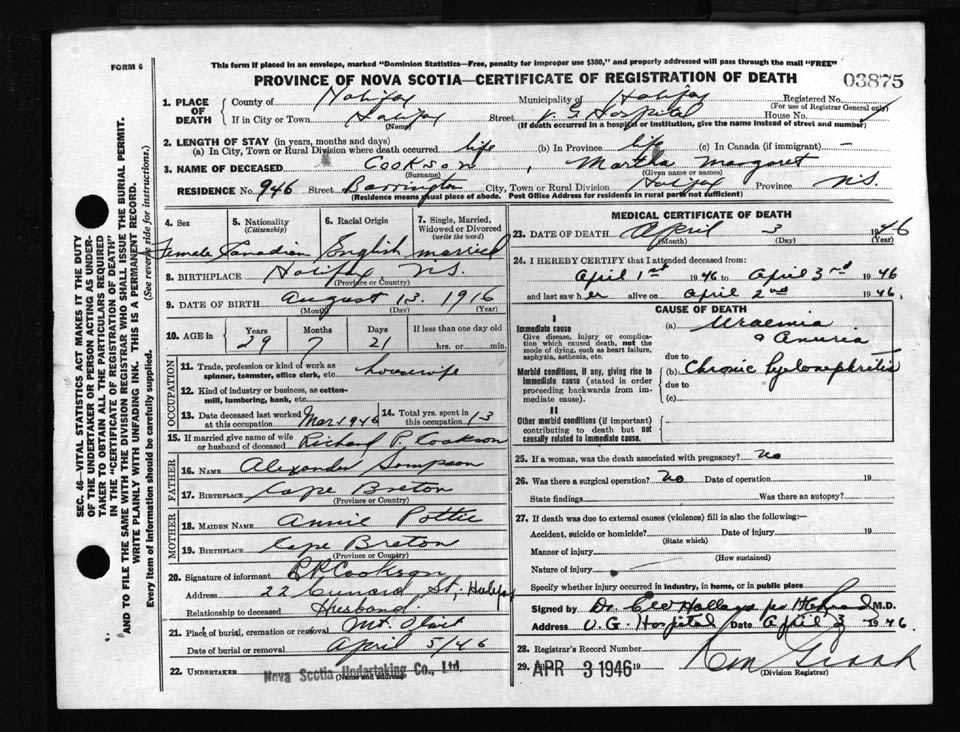 FORM 6
This form if placed in an envelope, marked "Dominion Statistics—Free, penalty for improper use $300," and properly addressed will pass through the mail "FREE"
PROVINCE OF NOVA SCOTIA—CERTIFICATE OF REGISTRATION OF DEATH
03875
1. PLACE OF DEATH
County of Halifax Municipality of Halifax Registered No.
(For use of Registrar General only)
If in City or Town Halifax Street V. G Hospital House No.
(Name) (If death occurred in a hospital or institution, give name instead of street and number)
2. LENGTH OF STAY (in years, months and days)
(a) In City, Town or Rural Division where death occurred life (b) In Province life (c) In Canada (if immigrant) —
3. NAME OF DECEASED Cookson, Martha Margaret
(Surname) (Given name or names)
RESIDENCE No. 946 Street Barrington City, Town or Rural Division Halifax Province N.S.
(Residence means usual place of abode. Post Office Address for residents in rural parts not sufficient)
4. Sex 5. Nationality (Citizenship) 6. Racial Origin 7. Single, Married, Widowed or Divorced (write the word)
Female Canadian English married
8. BIRTHPLACE Halifax, N.S.
(Province or Country)
9. DATE OF BIRTH August 13. 1916
(Month) (Day) (Year)
10. AGE in Years Months Days If less than one day old
29 7 21 hrs. or min.
OCCUPATION
11. Trade, profession or kind of work as spinner, teamster, office clerk, etc. housewife
12. Kind of industry or business, as cotton-mill, lumbering, bank, etc.
13. Date deceased last worked at this occupation Mar 1946 14. Total yrs. spent in this occupation 13
15. If married give name of wife or husband of deceased Richard P. Cookson
FATHER
16. NAME Alexander Simpson
17. BIRTHPLACE Cape Breton
(Province or Country)
MOTHER
18. MAIDEN NAME Annie Pottie
19. BIRTHPLACE Cape Breton
(Province or Country)
20. Signature of informant R.P. Cookson
Address 22 Cunard St; Halifax
Relationship to deceased Husband.
21. Place of burial, cremation or removal Mt. Olivet
Date of burial or removal April 5/46
22. UNDERTAKER Nova Scotia Undertaking Co., Ltd.
(Name and address)
MEDICAL CERTIFICATE OF DEATH
23. DATE OF DEATH April 3 1946
(Month) (Day) (Year)
24. I HEREBY CERTIFY that I attended deceased from:
April 1st 1946 to April 3rd 1946
and last saw her alive on April 2nd 1946.
CAUSE OF DEATH
I
Immediate cause
Give disease, injury or complication which caused death, not the mode of dying, such as heart failure, asphyxia, asthenia, etc.
(a) Uraemia & Anuria
due to
Morbid conditions, if any, giving rise to immediate cause (stated in order proceeding backwards from immediate cause).
(b) Chronic Pyelonephritis
due to
(c)
II
Other morbid conditions (if important) contributing to death but not causally related to immediate cause.
25. If a woman, was the death associated with pregnancy? No
26. Was there a surgical operation? No Date of operation 19
State findings Was there an autopsy?
27. If death was due to external causes (violence) fill in also the following:—
Accident, suicide or homicide? Date of injury 19
(State which)
Manner of injury
(How sustained)
Nature of injury
Specify whether injury occurred in industry, in home, or in public place
Signed by Dr. Geo M.D.
Address V. G. Hospital Date April 3 1946.
28. Registrar's Record Number
29. APR 3 1946 19
(Division Registrar)
SEC. 46—VITAL STATISTICS ACT MAKES IT THE DUTY OF THE UNDERTAKER OR PERSON ACTING AS UNDERTAKER TO OBTAIN ALL THE PARTICULARS REQUIRED IN THE "CERTIFICATE OF REGISTRATION OF DEATH" AND TO FILE THE SAME WITH THE DIVISION REGISTRAR WHO SHALL ISSUE THE BURIAL PERMIT.
WRITE PLAINLY WITH UNFADING INK. THIS IS A PERMANENT RECORD.
Every item of information should be carefully supplied. (See reverse side for instructions.)